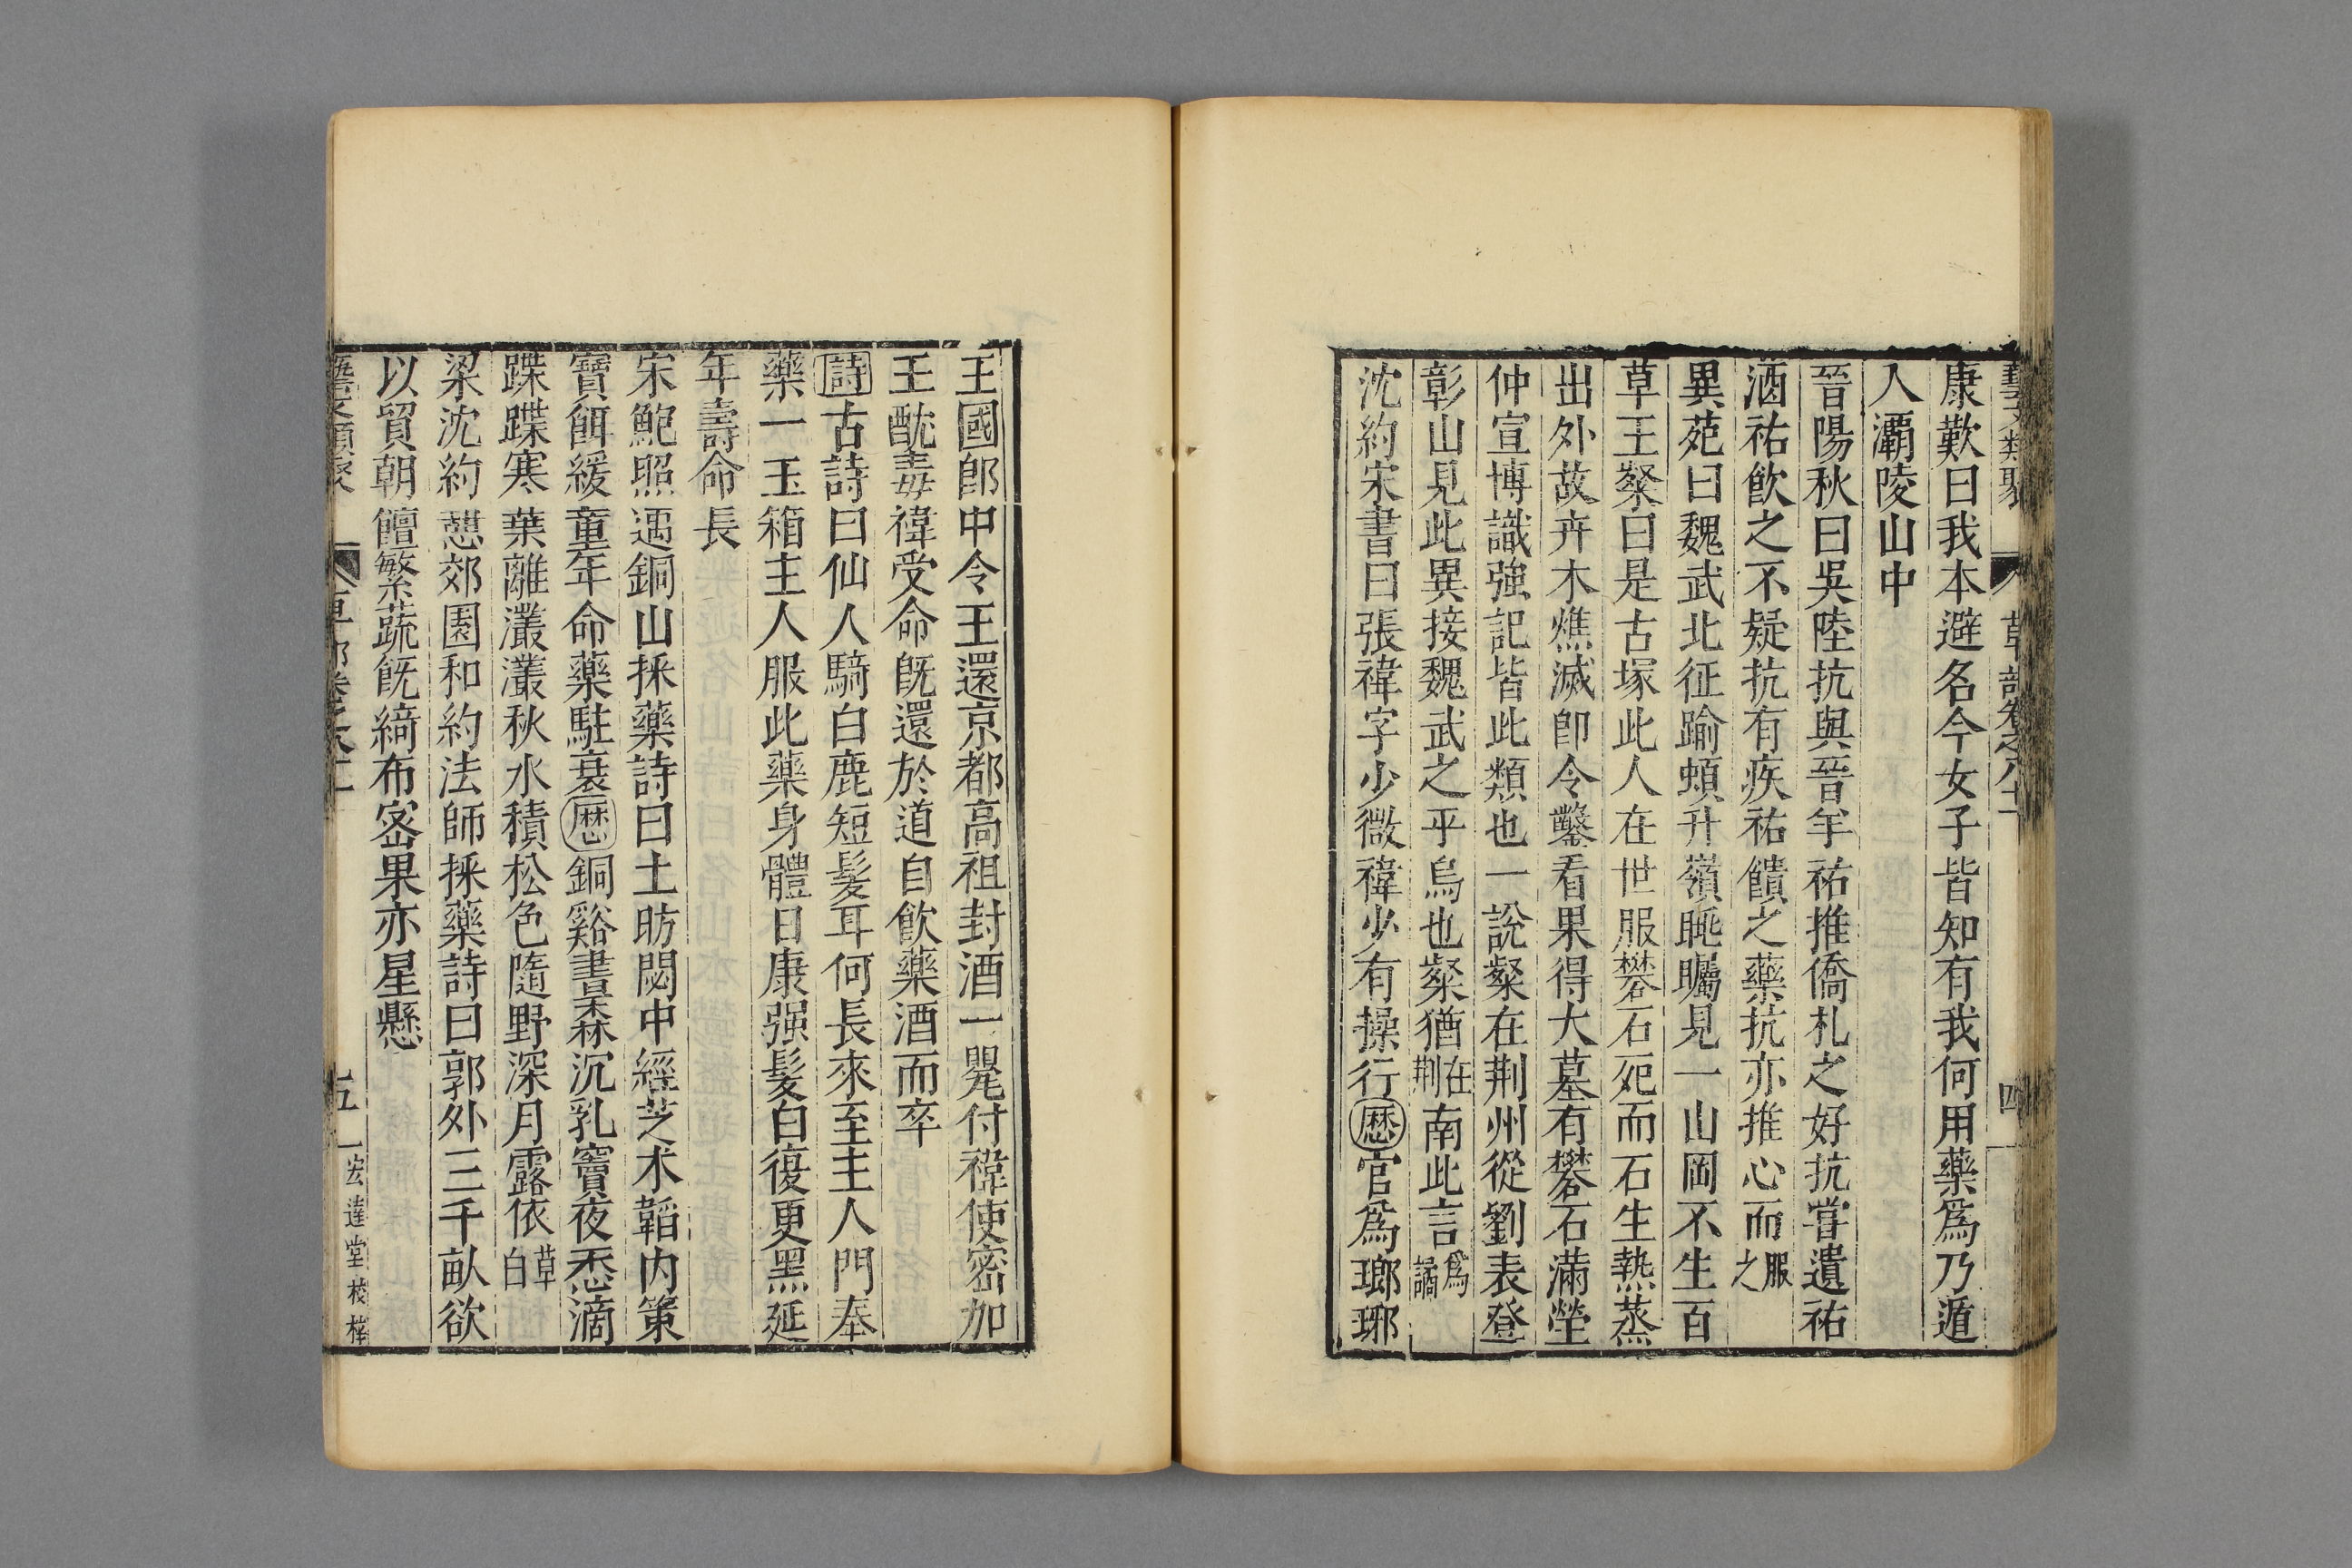 康歎曰我本避名今女子皆知有我何用藥爲乃遁
入灞陵山中
晉陽秋曰吳陸抗與晉羊祐推僑札之好抗嘗遺祐
酒祐飲之不疑抗有疾祐饋之藥抗亦推心而服之
異苑曰魏武北征踰頓升嶺眺矚見一山岡不生百
草王粲曰是古塚此人在世服礬石死而石生熱蒸
出外故卉木燋滅卽令鑿看果得大墓有礬石滿塋
仲宣博識強記皆此類也一說粲在荆州從劉表登
彰山見此異接魏武之平烏也粲猶在荆南此言爲譎
沈約宋書曰張褘字少微褘少有操行歷官爲瑯琊
王國郎中令王還京都高祖封酒一甖付褘使密加
王酖毒褘受命旣還於道自飲藥酒而卒
詩古詩曰仙人騎白鹿短髮耳何長來至主人門奉
藥一玉箱主人服此藥身體日康强髮白復更黑延
年壽命長
宋鮑照遇銅山採藥詩曰土昉閟中經芝朮韜内策
寶餌緩童年命藥駐衰歷銅谿晝森沉乳竇夜悉滴
蹀蹀寒葉離灇灇秋水積松色隨野深月露依草白
梁沈約憩郊園和約法師採藥詩曰郭外三千畝欲
以貿朝饘繁蔬旣綺布密果亦星懸
藝文類聚 草部卷之八十一 四
五 宏達堂校梓